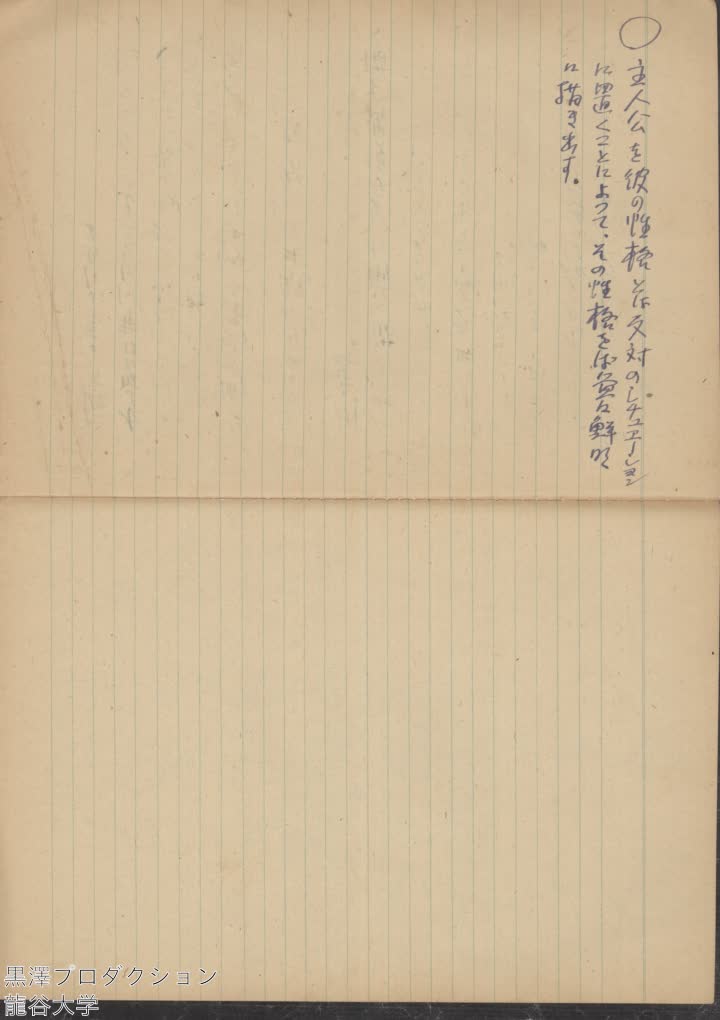 ○
主人公を彼の性格とは反対のシチュエーション
に置くことによって、その性格をば益々鮮明
に描き出す。
黒澤プロダクション
龍谷大学